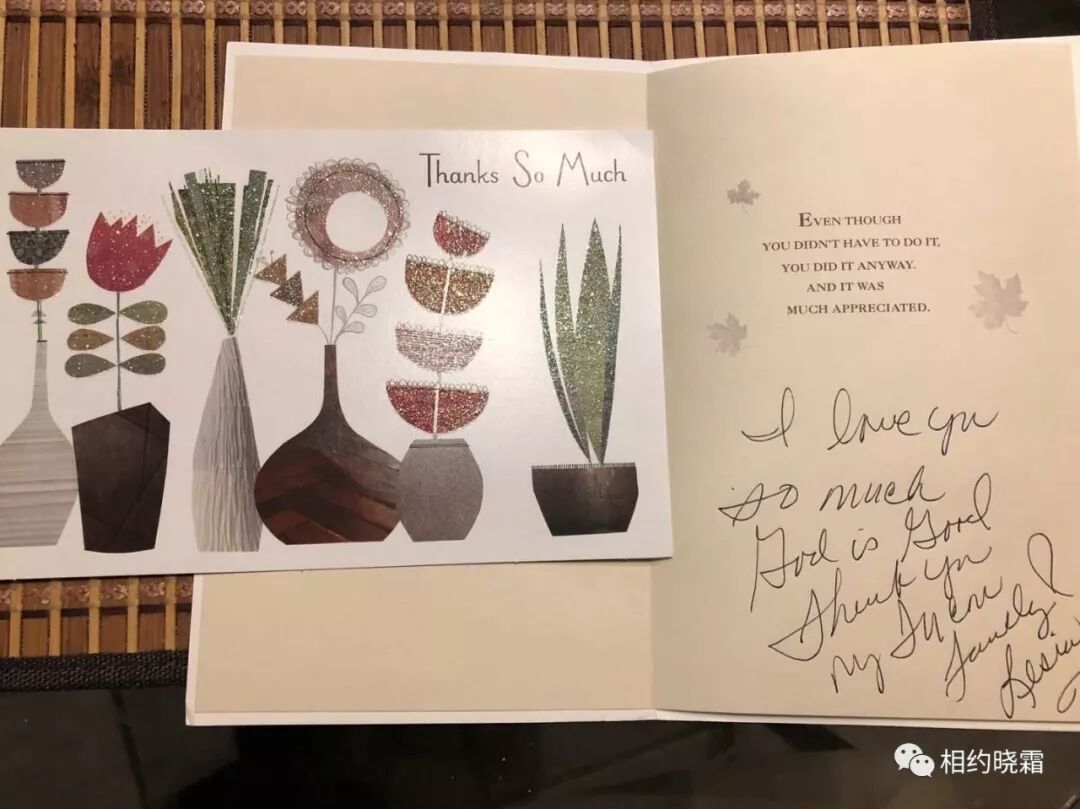 Thanks So Much
EVEN THOUGH
YOU DIDN'T HAVE TO DO IT,
YOU DID IT ANYWAY.
AND IT WAS
MUCH APPRECIATED.
I love you
so much
God is Good
Thank you
my
family
相约晓霜